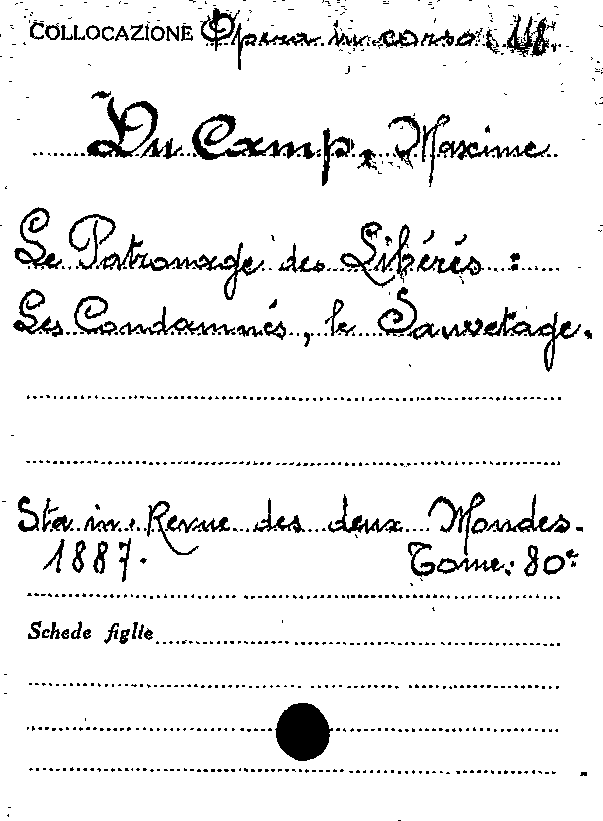 COLLOCAZIONE Opera in corso
Du Camp, Maxime
Le Patronage des Libérés :
Les Condamnés, le Sauvetage.
Sta in. Revue des deux Mondes.
1887. Tome: 80e
Schede figlie